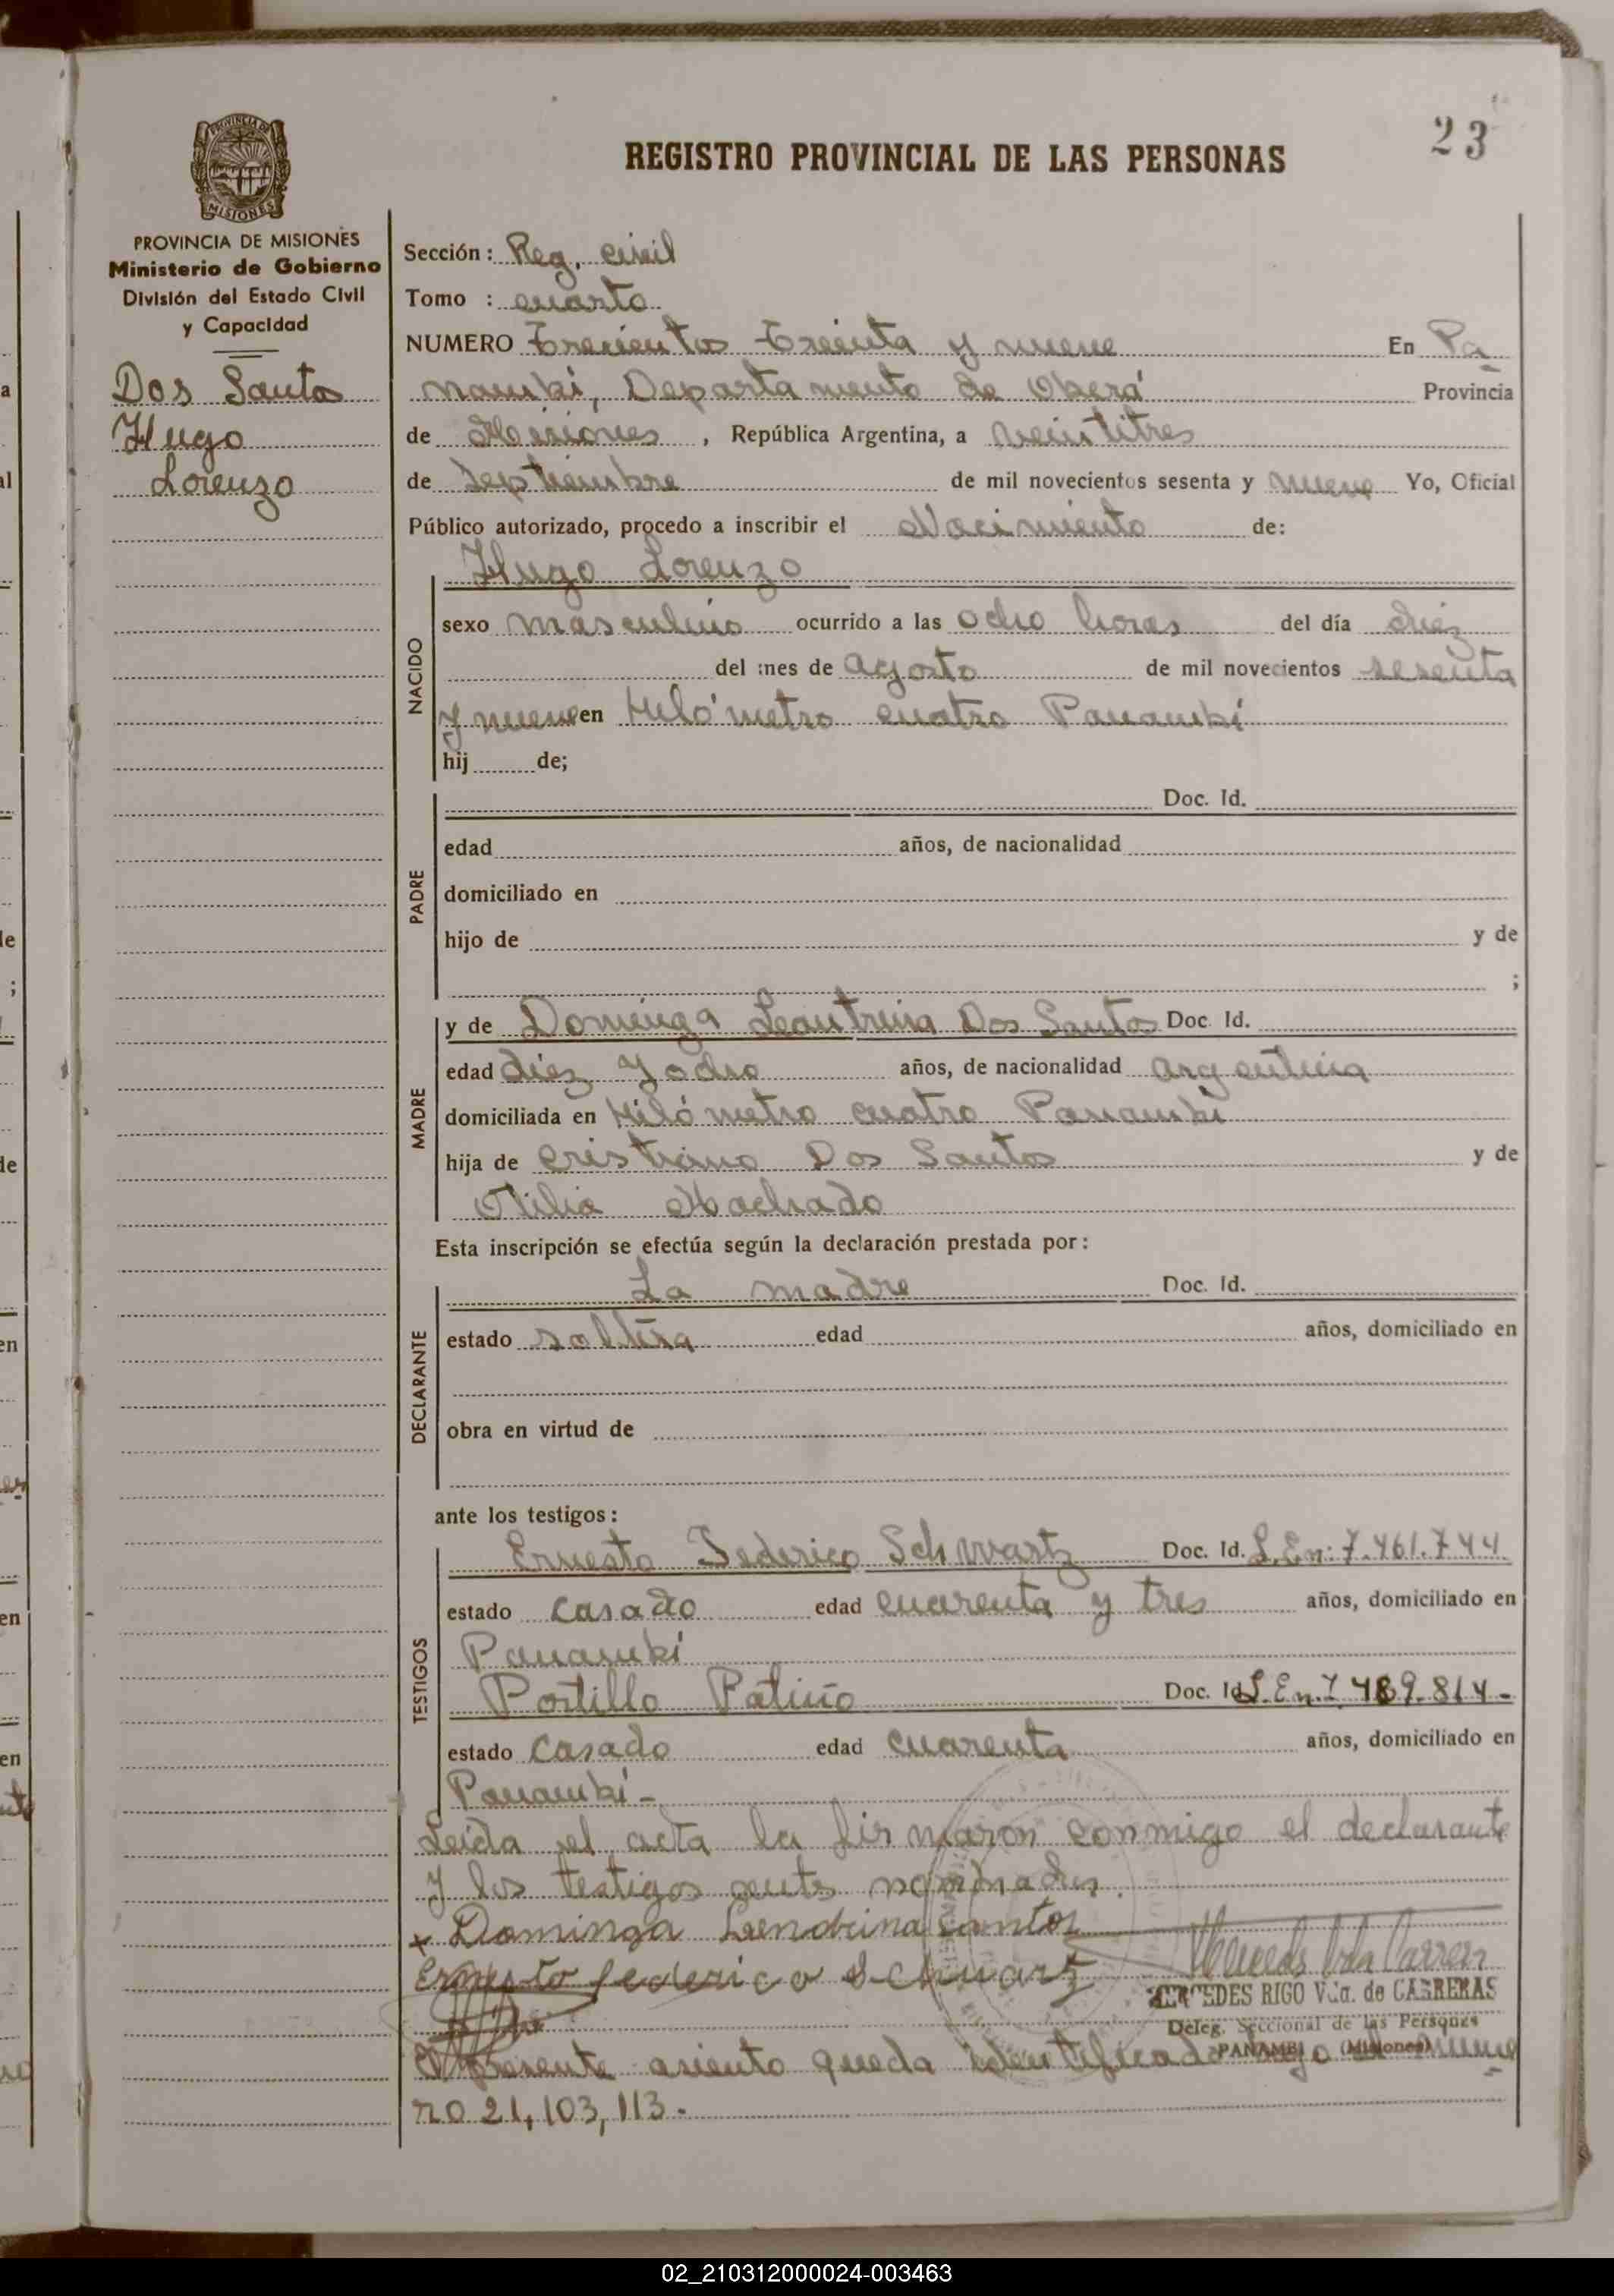 23
PROVINCIA DE
MISIONES
REGISTRO PROVINCIAL DE LAS PERSONAS
PROVINCIA DE MISIONES
Ministerio de Gobierno
División del Estado Civil
y Capacidad
Dos Santos
Hugo
Lorenzo
Sección: Reg. civil
Tomo : cuarto
NUMERO Trecientos Treinta y nueve En Pa
nambí, Departamento de Oberá Provincia
de Misiones, República Argentina, a veintitres
de Septiembre de mil novecientos sesenta y nueve Yo, Oficial
Público autorizado, procedo a inscribir el Nacimiento de:
Hugo Lorenzo
NACIDO
sexo masculino ocurrido a las ocho horas del día diez
del mes de agosto de mil novecientos sesenta
y nueve en Kilómetro cuatro Panambí
hij de;
PADRE
Doc. Id.
edad años, de nacionalidad
domiciliado en
hijo de y de
;
MADRE
y de Dominga Dos Santos Doc. Id.
edad diez y ocho años, de nacionalidad argentina
domiciliada en Kilómetro cuatro Panambí
hija de Cristiano Dos Santos y de
Otilia Machado
Esta inscripción se efectúa según la declaración prestada por:
DECLARANTE
La madre Doc. Id.
estado soltera edad años, domiciliado en
obra en virtud de
ante los testigos:
TESTIGOS
Ernesto Federico Schwartz Doc. Id. L.En: 7.461.744
estado casado edad cuarenta y tres años, domiciliado en
Panambí
Portillo Patiño Doc. Id L.En.7.489.814-
estado casado edad cuarenta años, domiciliado en
Panambí-
Leída el acta la firmaron conmigo el declarante
y los testigos nombrados.
x Dominga Santos
Ernesto federico Schuartz
MERCEDES RIGO Vda. de CARRERAS
Deleg. Seccional de las Personas
PANAMBI (Misiones)
El presente asiento queda identificado bajo el núme
ro 21,103,113.
02_210312000024-003463